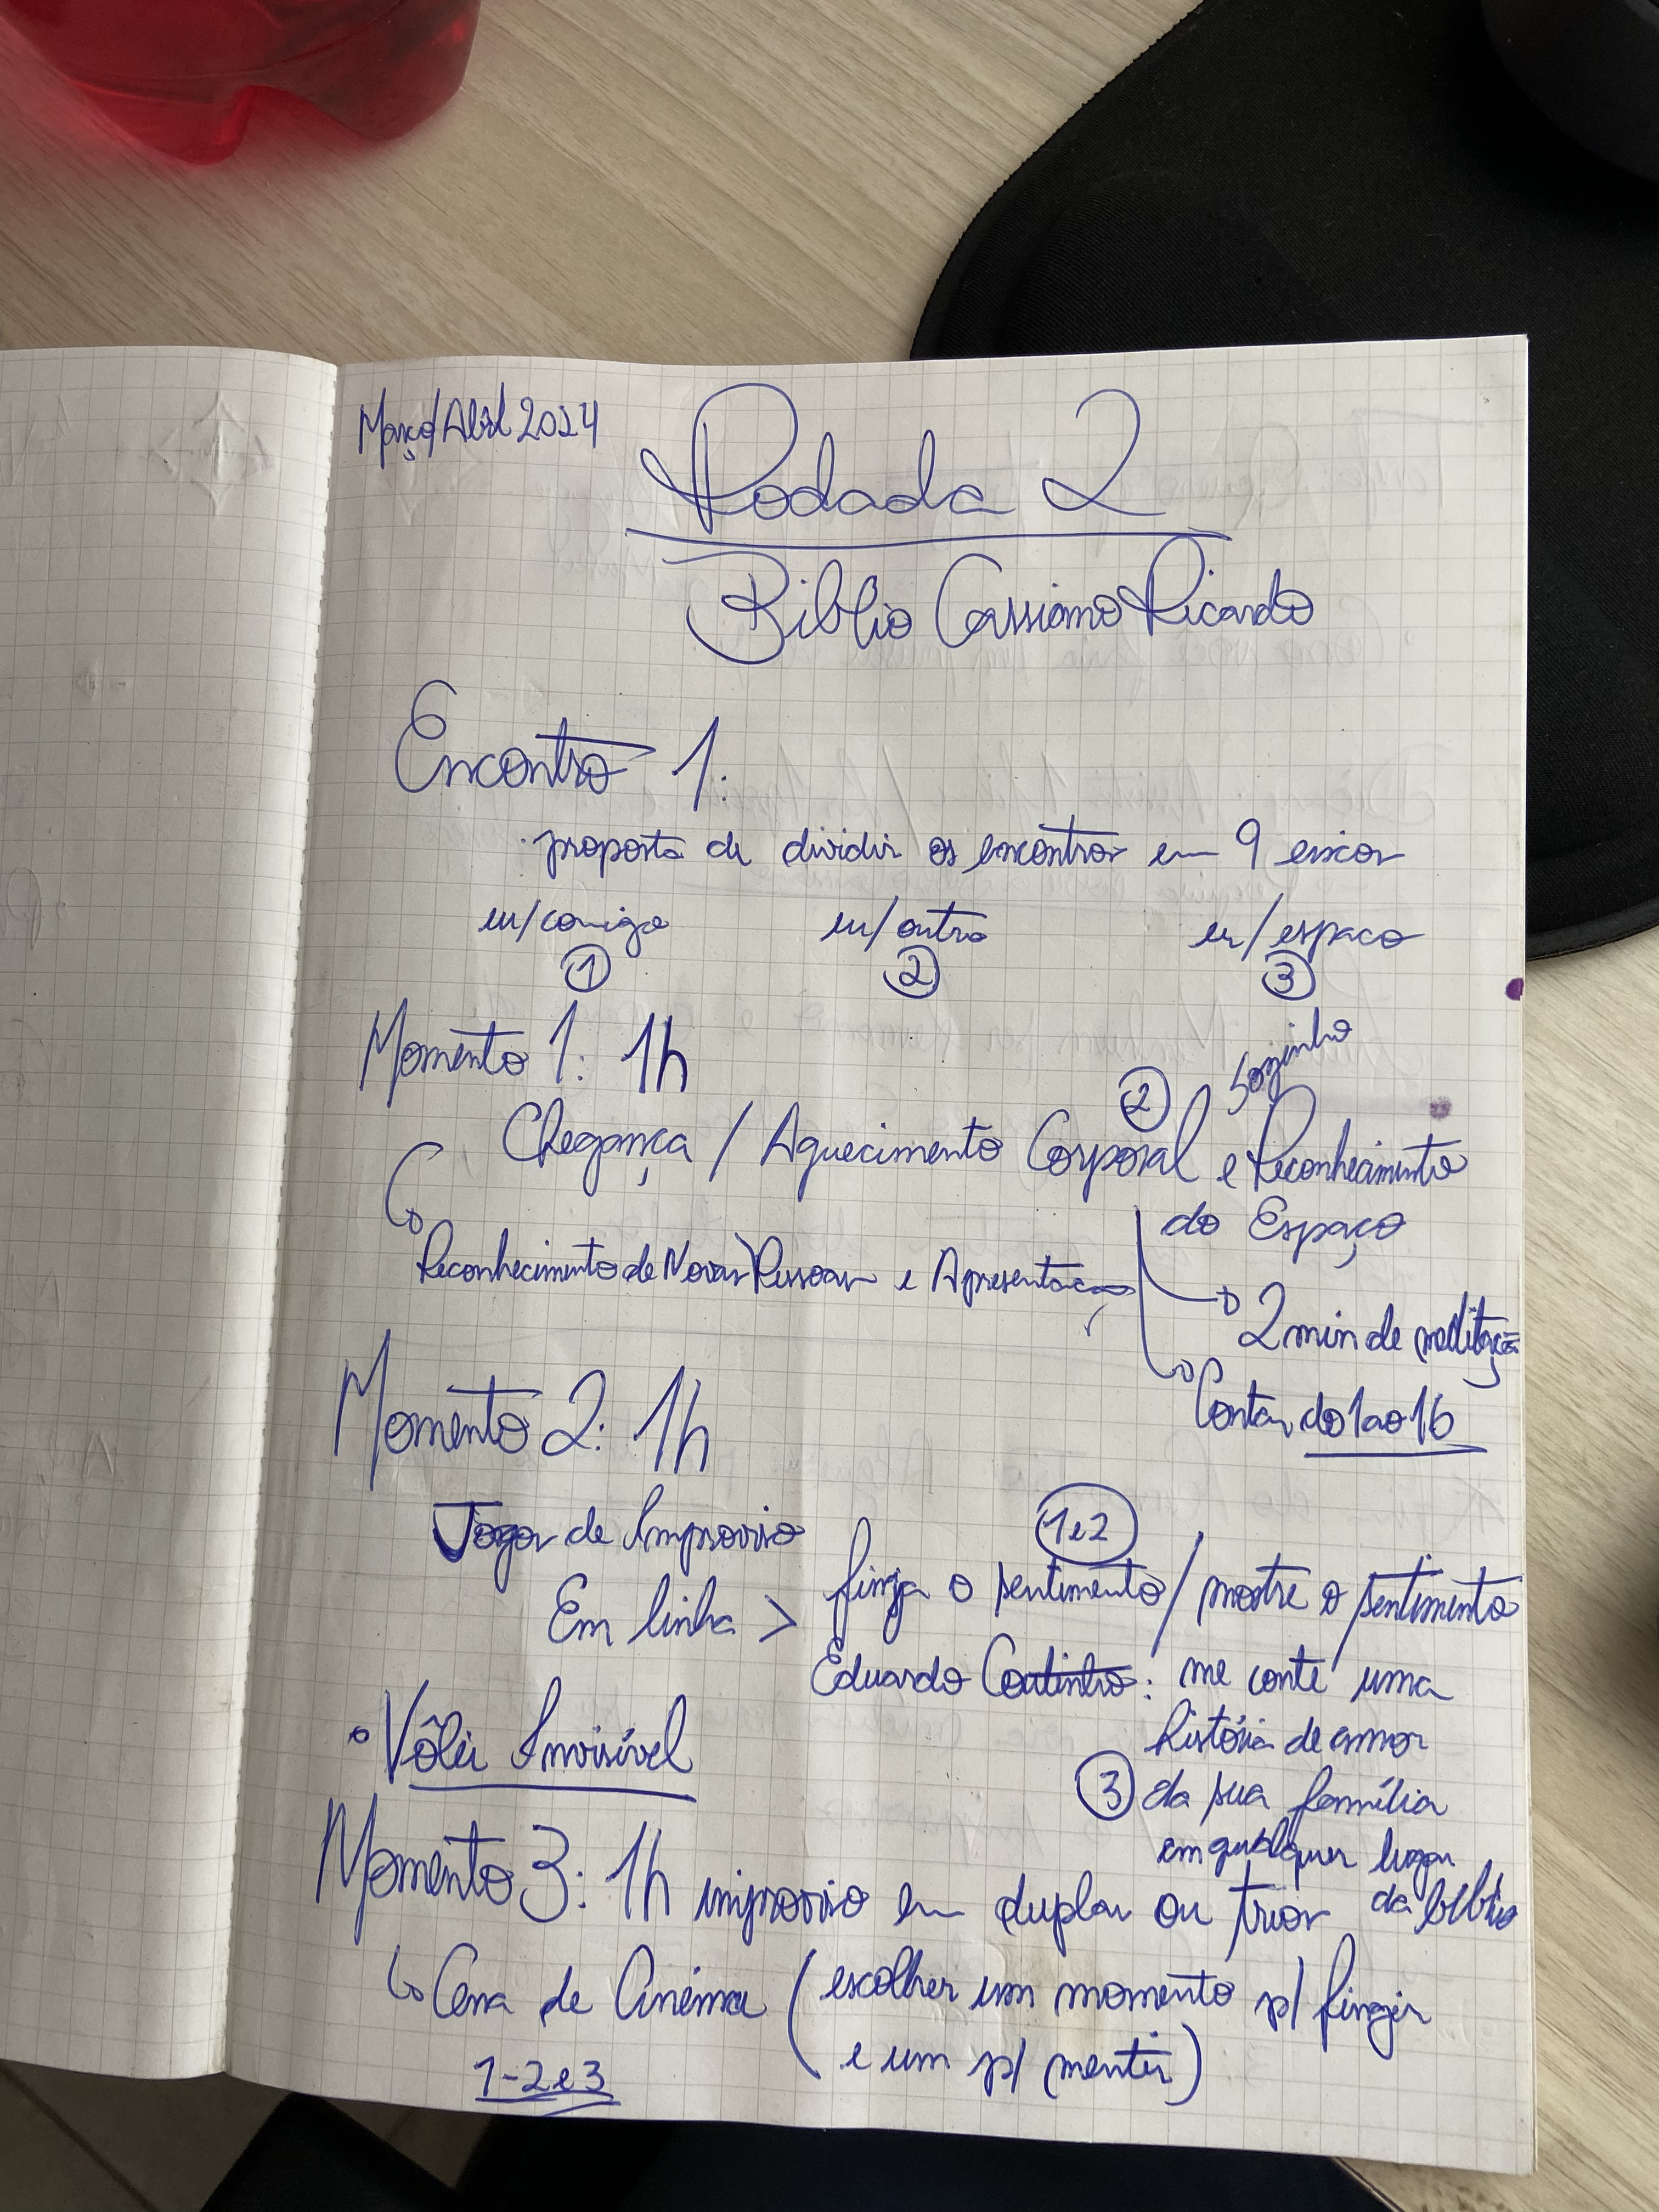 Março/Abril 2024
Rodada 2
Biblio Cassiano Ricardo
Encontro 1:
proposta de dividir os encontros em 9 eixos
eu/comigo eu/outro eu/espaço
1 2 3
Momento 1: 1h
2 Sozinho
Chegança / Aquecimento Corporal e Reconhecimento
do Espaço
Reconhecimento de Novas Pessoas e Apresentação
2 min de meditação
Contar do 1 ao 16
Momento 2: 1h
Jogos de Improviso
1e2
Em linha > finja o sentimento / mostre o sentimento
Eduardo Coutinho: me conte uma
história de amor
• Vôlei Invisível
3 da sua família
em qualquer lugar
da biblio
Momento 3: 1h improviso em duplas ou trios
Cena de Cinema (escolher um momento p/ fingir
e um p/ mentir)
1-2e3